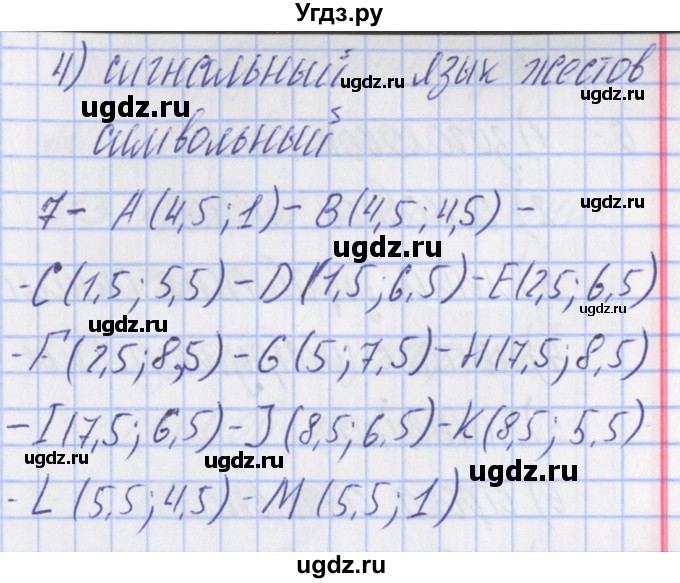 Угдз.ру
4) сигнальный язык жестов
символьный
7- A(4,5;1)- B(4,5;4,5) -
-C(1,5; 5,5) - D(1,5;6,5)- E(2,5; 6,5)
-F(2,5;8,5) - G(5;7,5)- H(7,5;8,5)
-I(7,5; 6,5)- J(8,5;6,5)-K(8,5; 5,5)
-L(5,5;4,5) - M(5,5;1)
ugdz.ru
ugdz.ru
ugdz.ru
ugdz.ru
ugdz.ru
ugdz.ru
ugdz.ru
ugdz.ru
ugdz.ru
ugdz.ru
ugdz.ru
ugdz.ru
ugdz.ru